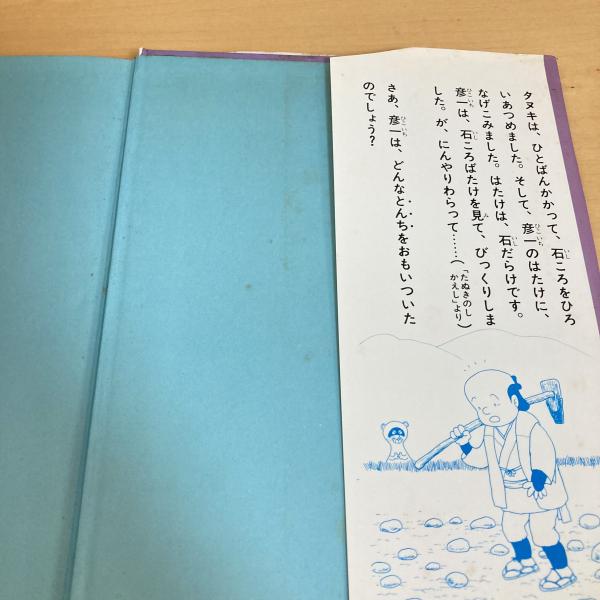 タヌキは、ひとばんかかって、石ころをひろ
いあつめました。そして、彦一のはたけに、
なげこみました。はたけは、石だらけです。
彦一は、石ころばたけを見て、びっくりしま
した。が、にんやりわらって……（「たぬきのしかえし」より）
さあ、彦一は、どんなとんちをおもいついた
のでしょう？